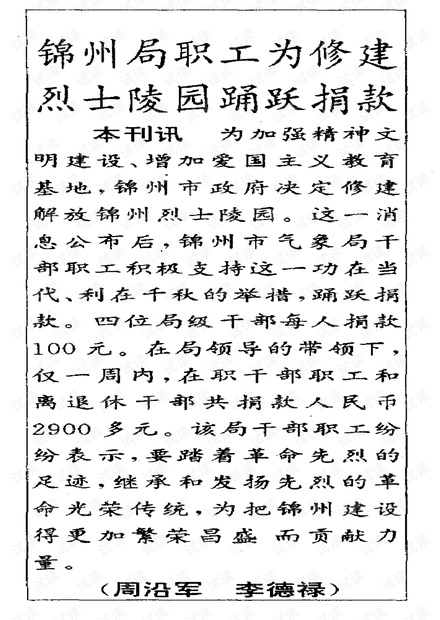 锦州局职工为修建
烈士陵园踊跃捐款
本刊讯 为加强精神文
明建设、增加爱国主义教育
基地，锦州市政府决定修建
解放锦州烈士陵园。这一消
息公布后，锦州市气象局干
部职工积极支持这一功在当
代、利在千秋的举措，踊跃捐
款。四位局级干部每人捐款
100元。在局领导的带领下，
仅一周内，在职干部职工和
离退休干部共捐款人民币
2900多元。该局干部职工纷
纷表示，要踏着革命先烈的
足迹，继承和发扬先烈的革
命光荣传统，为把锦州建设
得更加繁荣昌盛 而贡献力
量。
（周沿军 李德禄）